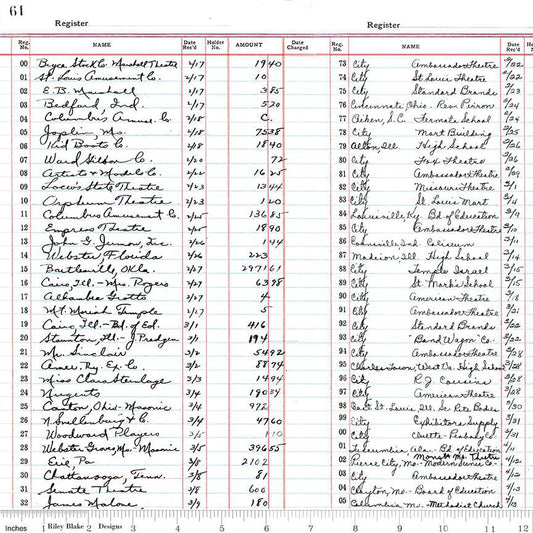 61
Register
Register
Reg. No. NAME Date Rec'd Holder No. AMOUNT Date Charged
Reg. No. NAME Date Rec'd
00 Bryce Stock Co. Marshall Theatre 2/17 1940
01 St. Louis Amusement Co. 2/17 10
02 E.B. Marshall 2/17 385
03 Bedford, Ind. 2/17 520
04 Columbus Amuse. Co. 2/18 C.
05 Joplin, Mo. 2/18 7538
06 Kid Boots Co. 2/18 1840
07 Ward Hilton Co. 2/20 72
08 Artists & Models Co. 2/22 1625
09 Loew's State Theatre 2/23 1344
10 Orpheum Theatre 2/23 120
11 Columbus Amusement Co. 2/25 13685
12 Empress Theatre 2/25 1890
13 John G. Inc. 2/26 144
14 Webster Florida 2/26 223
15 Bartlesville, Okla. 2/27 297161
16 Cairo, Ill.- Mrs. Rogers 2/27 6398
17 Alhambra Grotto 2/27 4
18 Mt. Moriah Temple 2/27 5
19 Cairo, Ill.- Bd. of Ed. 3/1 416
20 Staunton, Ill.- 3/1 194
21 Mr. Sinclair 3/2 5492
22 Amer. Ry. Ex. Co. 3/2 8874
23 Miss Clara 3/3 1494
24 Nugents 3/4 19034
25 Canton, Ohio- Masonic 3/4 972
26 N. Snellenburg & Co. 3/4 4760
27 Woodward Players 3/5 110
28 Webster Groves, Mo- Masonic 3/5 39655
29 Erie, Pa 3/8 2102
30 Chattanooga, Tenn. 3/8 81
31 Senate Theatre 3/8 600
32 James Malone 3/9 180
73 City Ambassador Theatre 2/22
74 City St Louis Theatre 2/22
75 City Standard Brands 2/23
76 Cincinnati, Ohio. 2/24
77 Aiken, S.C. Fermata School 2/24
78 City Mart Building 2/25
79 Alton, Ill. High School 2/26
80 City Fox Theatre
81 City Ambassador Theatre
82 City Missouri Theatre 3/1
83 City St. Louis Mart 3/4
84 Louisville, Ky. Bd. of Education 3/9
85 City Ambassador Theatre 3/10
86 Evansville, Ind. Coliseum 3/11
87 Madison, Ill. High School 3/14
88 City Temple Israel 3/15
89 City St. Mark's School 3/15
90 City American Theatre 3/18
91 City Ambassador Theatre 3/21
92 City Standard Brands 3/22
93 City "Band Wagon" Co. 3/22
94 City Ambassador Theatre 3/28
95 Charles Town, West Va. High School 3/28
96 City R.J. Cousins 3/28
97 City American Theatre 3/28
98 East St. Louis, Ill. Sc Rite Bodies 3/30
99 City Exhibitors Supply 3/31
00 City Peabody Co. 3/31
01 Tuscumbia, Ala- Bd of Education 4/11
02 Pierce City, Mo- Modern Scenic Co- Theatre 4/12
03 City Ambassador Theatre 4/12
04 Clayton, Mo- Board of Education 4/13
05 Columbia, Mo- Methodist Church 4/13
Inches 1 Riley Blake Designs 2 3 4 5 6 7 8 9 10 11 12